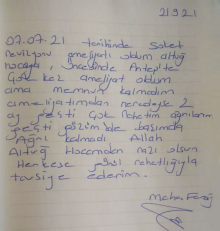 21921
07.07.21 tarihinde Saket
revizyon ameliyatı oldum altuğ
hocayla, öncesinde Antepte
Çok kez ameliyat oldum
ama memnun kalmadım
ameliyatımdan neredeyle 2
ay geçti Çok Rahatım ağrılarım
geçti gözümde başımda
Ağrı kalmadı Allah
Altuğ Hocamdan razı olsun
Herkese gönül rahatlığıyla
tavsiye ederim.
Maha